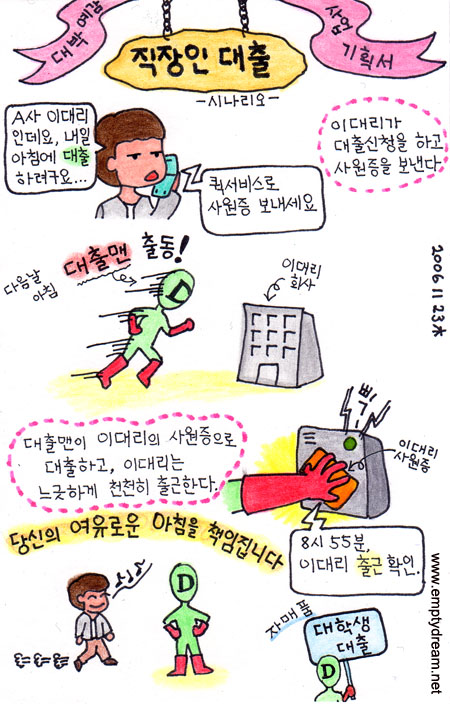 대박 예감
사업
기획서
직장인 대출
-시나리오-
A사 이대리
인데요, 내일
아침에 대출
하려구요...
퀵서비스로
사원증 보내세요
이대리가
대출신청을 하고
사원증을 보낸다
2006 11 23 木
다음날
아침
대출맨 출동!
D
이대리
회사
대출맨이 이대리의 사원증으로
대출하고, 이대리는
느긋하게 천천히 출근한다.
삑
이대리
사원증
8시 55분,
이대리 출근 확인.
당신의 여유로운 아침을 책임집니다
D
자매품
대학생
대출
D
www.emptydream.net